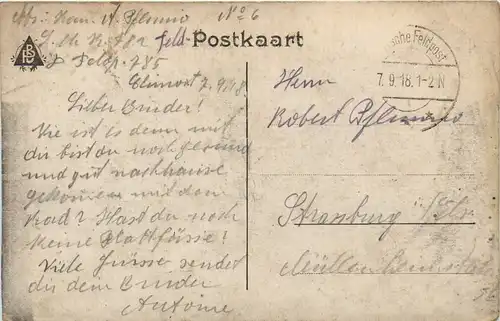 Abs: Kan. A. Pflimio No 6
Feldp. 785
feld-Postkaart
Elincourt 7.9.18
Lieber Bruder!
Wie ist es denn mit
dir bist du noch gesund
und gut nachhause
gekomen mit dem
Rad? Hast du noch
keine Plattfüsse!
Viele Grüsse sendet
dir dein Bruder
Antoine
sche Feldpost
7.9.18.1-2N
Herrn
Robert Pflimio
Strassburg i/Els